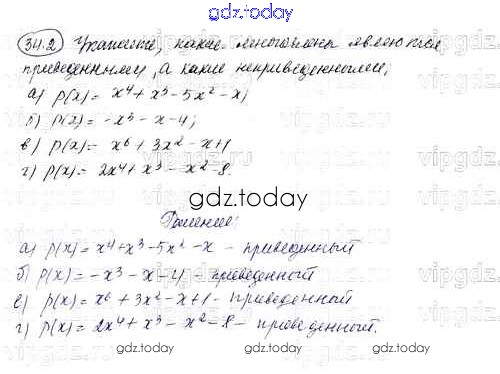 gdz.today
34.2 Укажите, какие многочлены являются
приведенными, а какие неприведенными:
а) p(x) = x⁴ + x³ - 5x² - x;
б) p(x) = -x³ - x - 4;
в) p(x) = x⁶ + 3x² - x + 1
г) p(x) = 2x⁴ + x³ - x² - 8.
gdz.today
Решение:
а) p(x) = x⁴ + x³ - 5x² - x - приведенный
б) p(x) = -x³ - x - 4 - приведенный
в) p(x) = x⁶ + 3x² - x + 1 - приведенный
г) p(x) = 2x⁴ + x³ - x² - 8 - приведенный.
gdz.today gdz.today